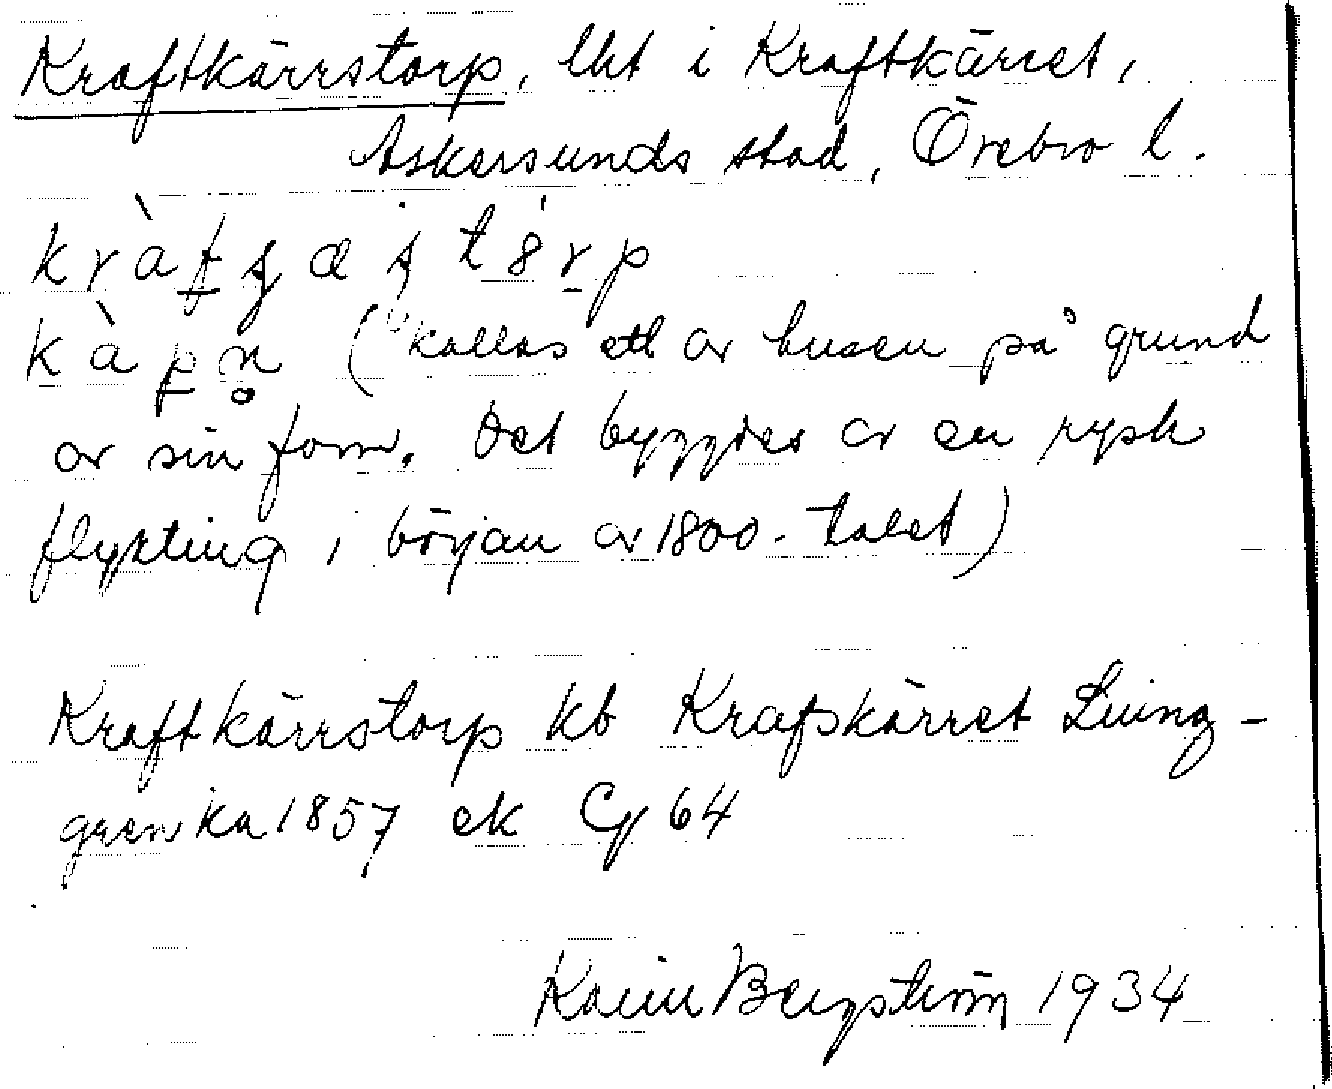 Kraftkärrstorp, lht i Kraftkärret,
Askersunds stad, Örebro l.
kràf
kàpn̥ (kallas ett av husen på grund
av sin form. Det byggdes av en rysk
flykting i början av 1800-talet)
Kraftkärrstorp kb Krafskärret Ljung-
gren ka 1857 ek Cy 64
Karin Bergström 1934